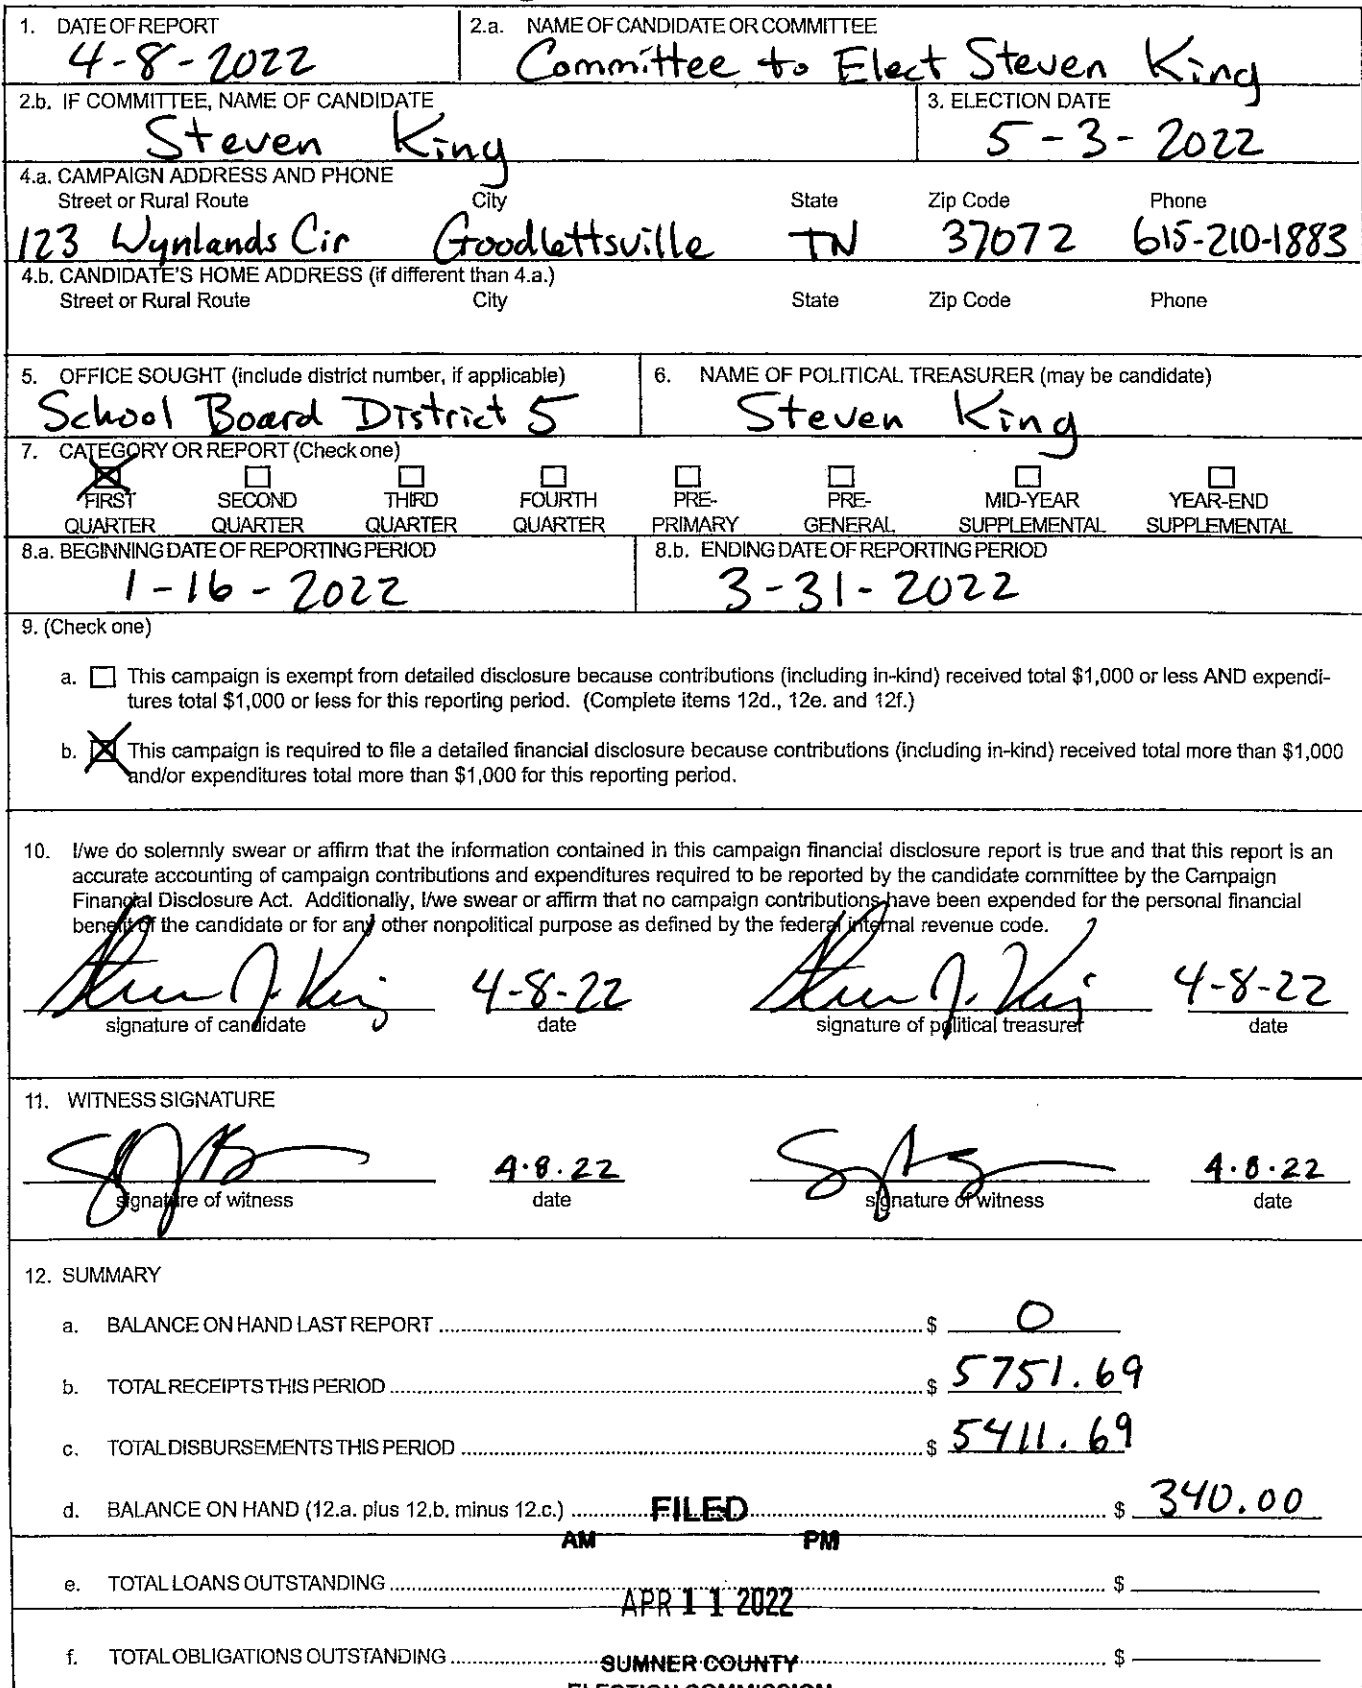 1. DATE OF REPORT
4-8-2022
2.a. NAME OF CANDIDATE OR COMMITTEE
Committee to Elect Steven King
2.b. IF COMMITTEE, NAME OF CANDIDATE
Steven King
3. ELECTION DATE
5-3-2022
4.a. CAMPAIGN ADDRESS AND PHONE
Street or Rural Route City State Zip Code Phone
123 Wynlands Cir Goodlettsville TN 37072 615-210-1883
4.b. CANDIDATE'S HOME ADDRESS (if different than 4.a.)
Street or Rural Route City State Zip Code Phone
5. OFFICE SOUGHT (include district number, if applicable)
School Board District 5
6. NAME OF POLITICAL TREASURER (may be candidate)
Steven King
7. CATEGORY OR REPORT (Check one)
FIRST SECOND THIRD FOURTH PRE- PRE- MID-YEAR YEAR-END
QUARTER QUARTER QUARTER QUARTER PRIMARY GENERAL SUPPLEMENTAL SUPPLEMENTAL
8.a. BEGINNING DATE OF REPORTING PERIOD
1-16-2022
8.b. ENDING DATE OF REPORTING PERIOD
3-31-2022
9. (Check one)
a. This campaign is exempt from detailed disclosure because contributions (including in-kind) received total $1,000 or less AND expendi-
tures total $1,000 or less for this reporting period. (Complete items 12d., 12e. and 12f.)
b. This campaign is required to file a detailed financial disclosure because contributions (including in-kind) received total more than $1,000
and/or expenditures total more than $1,000 for this reporting period.
10. I/we do solemnly swear or affirm that the information contained in this campaign financial disclosure report is true and that this report is an
accurate accounting of campaign contributions and expenditures required to be reported by the candidate committee by the Campaign
Financial Disclosure Act. Additionally, I/we swear or affirm that no campaign contributions have been expended for the personal financial
benefit of the candidate or for any other nonpolitical purpose as defined by the federal internal revenue code.
Steven J. King 4-8-22 Steven J. King 4-8-22
signature of candidate date signature of political treasurer date
11. WITNESS SIGNATURE
4.8.22 4.8.22
signature of witness date signature of witness date
12. SUMMARY
a. BALANCE ON HAND LAST REPORT $ 0
b. TOTAL RECEIPTS THIS PERIOD $ 5751.69
c. TOTAL DISBURSEMENTS THIS PERIOD $ 5411.69
d. BALANCE ON HAND (12.a. plus 12.b. minus 12.c.) $ 340.00
FILED
AM PM
e. TOTAL LOANS OUTSTANDING $
APR 11 2022
f. TOTAL OBLIGATIONS OUTSTANDING $
SUMNER COUNTY
ELECTION COMMISSION